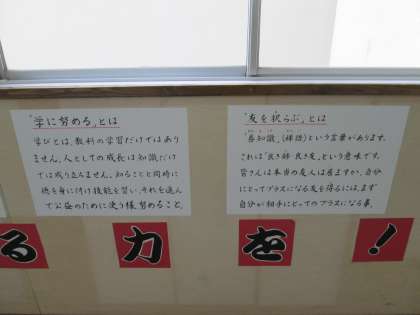 「学に努める」とは
学びとは、教科の学習だけではあり
ません。人としての成長は知識だけ
では成り立ちません。知ることと同時に
徳を身に付け技能を習い、それを進んで
公益のために使う様努めること。
「友を択らぶ」とは
「善知識」(禅語)という言葉があります。
これは「良き師・良き友」という意味です。
皆さんは本当の友人は居ますか。自分
にとってプラスになる友を得るには、まず
自分が相手にとってのプラスになる事。
る力を!